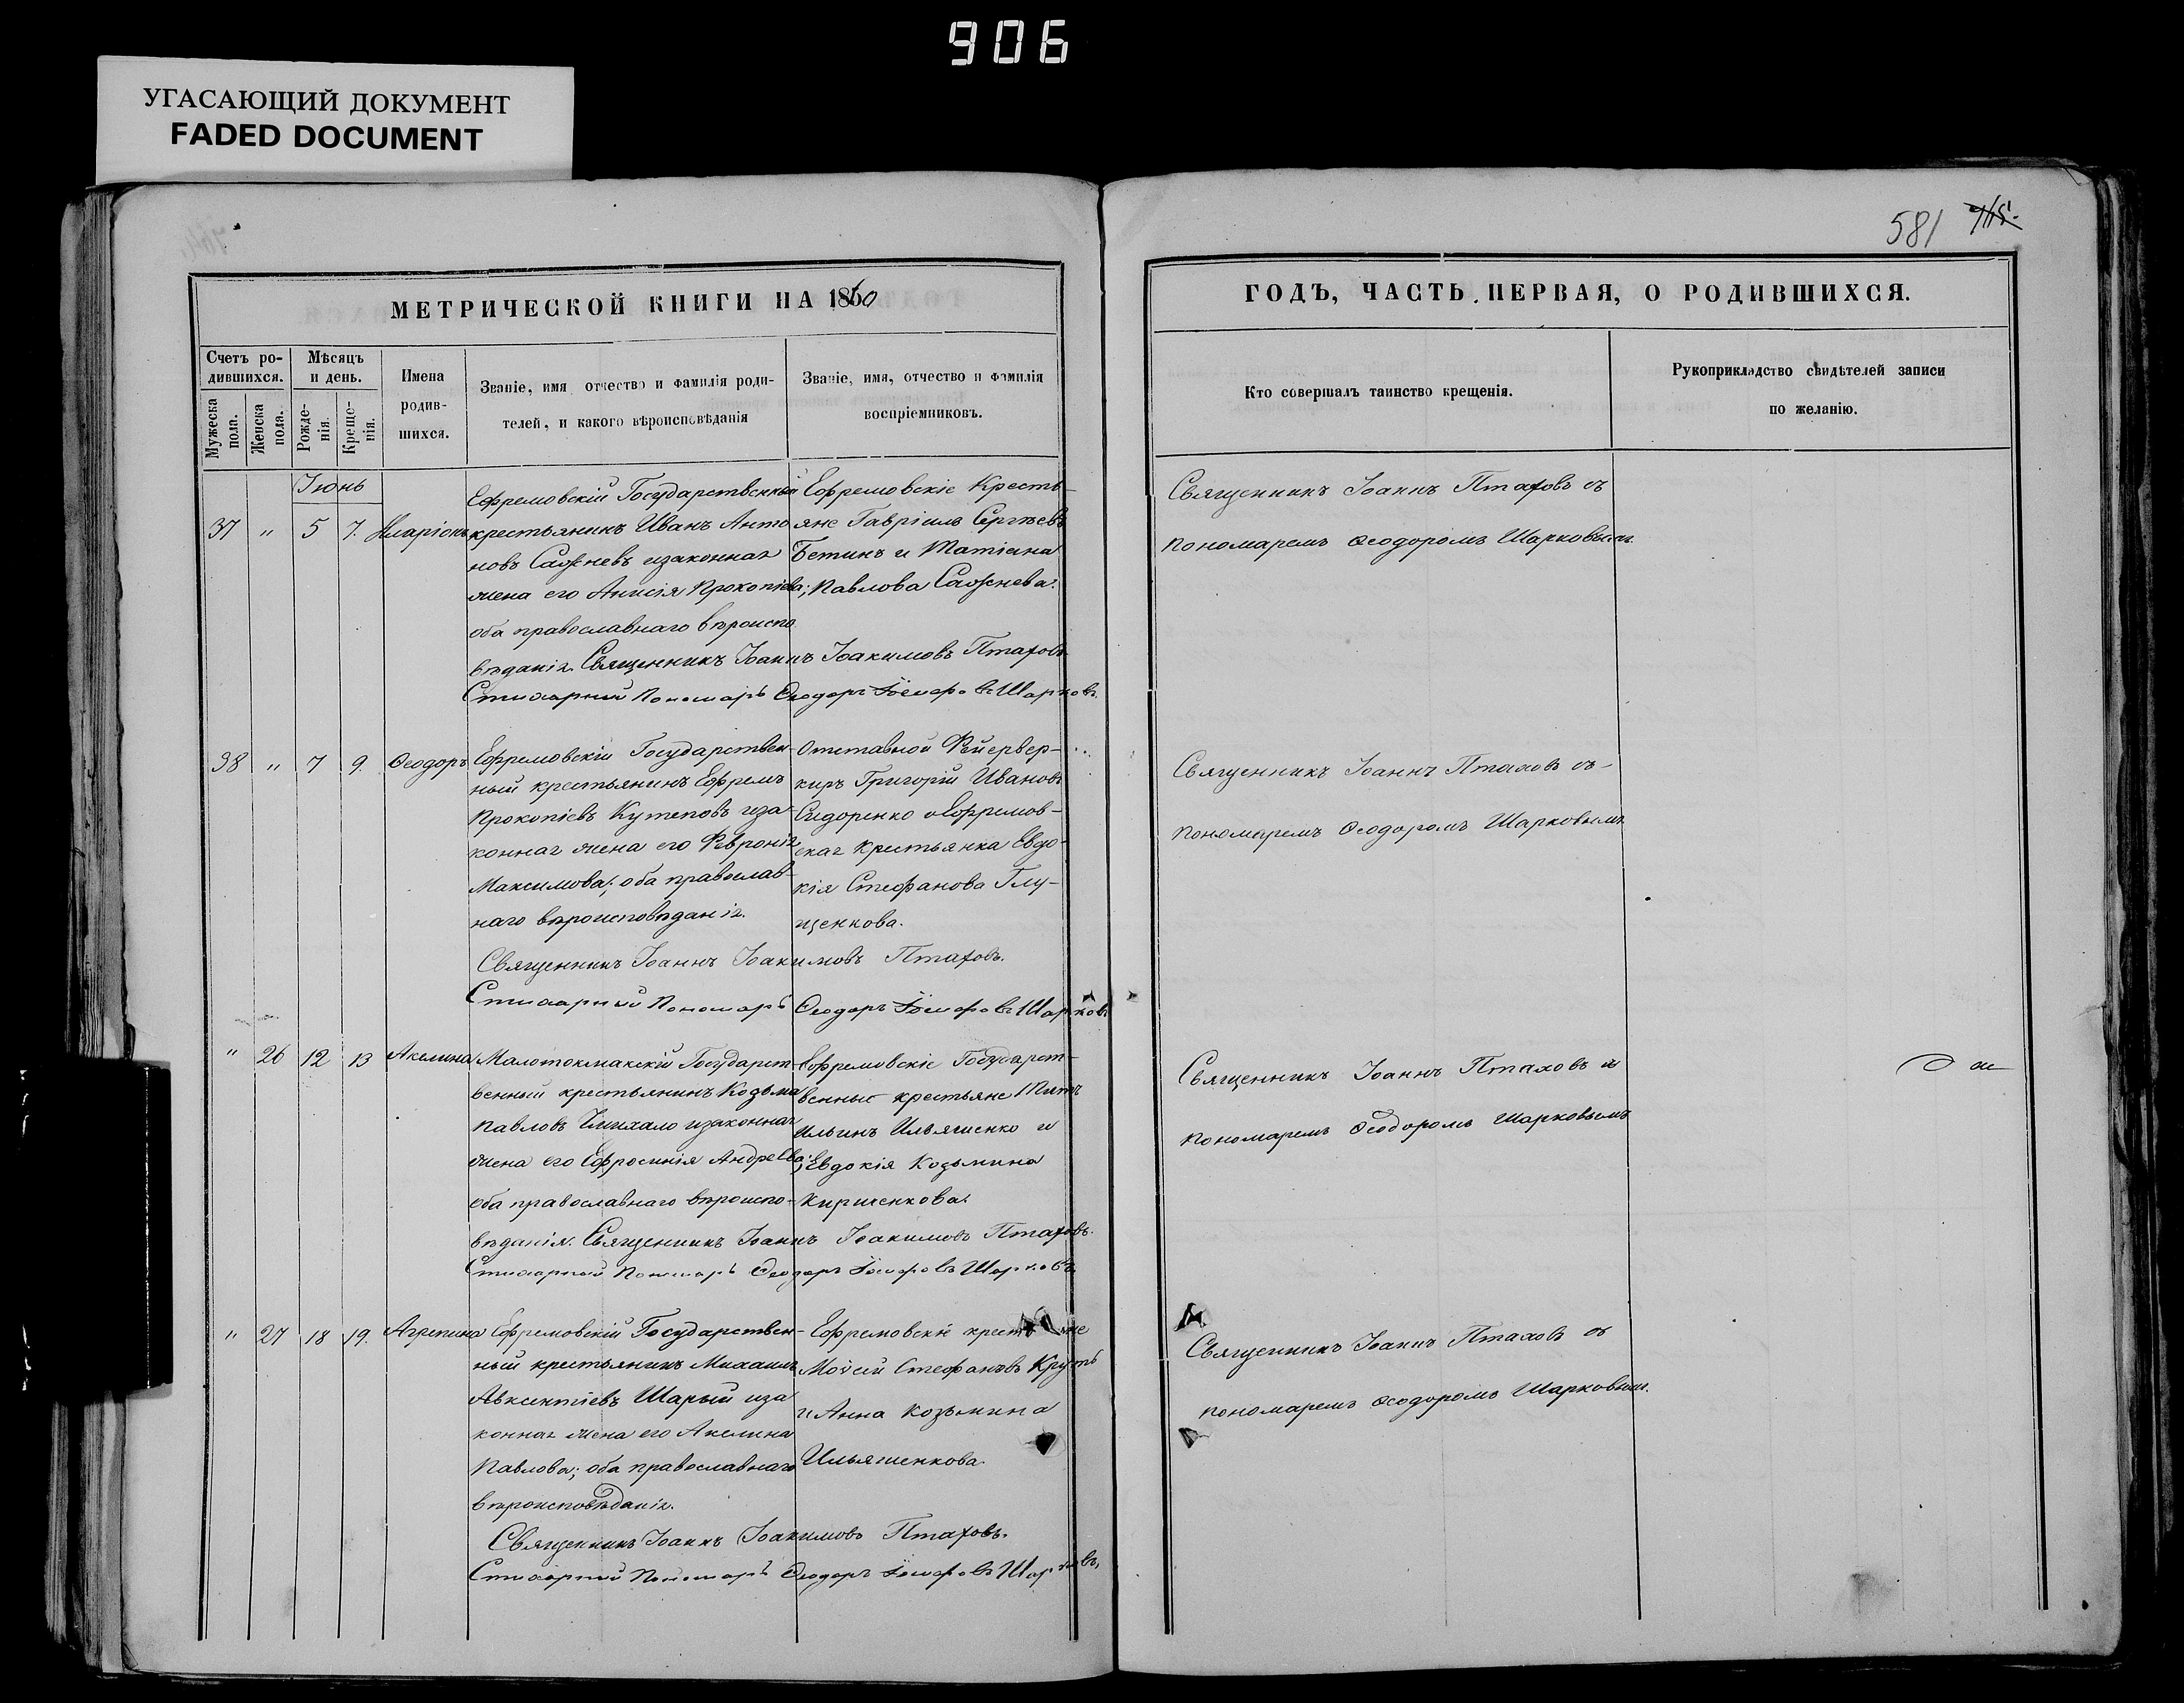 906
УГАСАЮЩИЙ ДОКУМЕНТ
FADED DOCUMENT
581
МЕТРИЧЕСКОЙ КНИГИ НА 1860
ГОДЪ, ЧАСТЬ ПЕРВАЯ, О РОДИВШИХСЯ.
Счетъ ро-
дившихся.
Мужеска
пола.
Женска
пола.
Мѣсяцъ
и день.
Рожде-
нія.
Креще-
нія.
Имена
родив-
шихся.
Званіе, имя отчество и фамилія роди-
телей, и какого вѣроисповѣданія
Званіе, имя, отчество и фамилія
воспріемниковъ.
Кто совершалъ таинство крещенія.
Рукоприкладство свидѣтелей записи
по желанію.
Іюнь
37 " 5 7. Иларіонъ
Ефремовскій Государственный
крестьянинъ Иванъ Анто
новъ Сажневъ изаконная
жена его Анисія Прокопіева;
оба православнаго вѣроиспо
вѣданія. Священникъ Іоаннъ Іоакимовъ Птаховъ
Стихарный Пономарь Ѳеодоръ Іосифовъ Шарковъ.
Ефремовскіе Кресть-
яне Гавріилъ Сергѣевъ
Бетинъ и Татіана
Павлова Сажнева.
Священникъ Іоаннъ Птаховъ съ
пономаремъ Ѳеодоромъ Шарковымъ.
38 " 7 9. Ѳеодоръ
Ефремовскій Государствен-
ный крестьянинъ Ефремъ
Прокопіевъ Кутеповъ иза-
конная жена его Февронія
Максимова; оба православ-
наго вѣроисповѣданія.
Священникъ Іоаннъ Іоакимовъ Птаховъ.
Стихарный Пономарь Ѳеодоръ Іосифовъ Шарковъ
Отставной Фейервер-
киръ Григорій Ивановъ
Сидоренко и Ефремов-
ская крестьянка Евдо-
кія Стефанова Глу-
щенкова.
Священникъ Іоаннъ Птаховъ съ-
пономаремъ Ѳеодоромъ Шарковымъ
" 26 12 13 Акелина
Малотокмакскій Государст-
венный крестьянинъ Козьма
Павловъ изаконная
жена его Ефросинія Андреева;
оба православнаго вѣроиспо-
вѣданія. Священникъ Іоаннъ Іоакимовъ Птаховъ.
Стихарный Пономарь Ѳеодоръ Іосифовъ Шарковъ
Ефремовскіе Государст-
венные крестьяне Титъ
Ильинъ Ильяшенко и
Евдокія Козьмина
Кириченкова.
Священникъ Іоаннъ Птаховъ съ
пономаремъ Ѳеодоромъ Шарковымъ
" 27 18 19. Агрепина
Ефремовскій Государствен-
ный крестьянинъ Михаилъ
Авксентіевъ Шарый иза
конная жена его Акелина
Павлова; оба православнаго
вѣроисповѣданія.
Священникъ Іоаннъ Іоакимовъ Птаховъ.
Стихарный Пономарь Ѳеодоръ Іосифовъ Шарковъ,
Ефремовскіе крестьяне
Моѵсей Стефановъ Круть
и Анна Козьмина
Ильяшенкова.
Священникъ Іоаннъ Птаховъ съ
пономаремъ Ѳеодоромъ Шарковымъ.